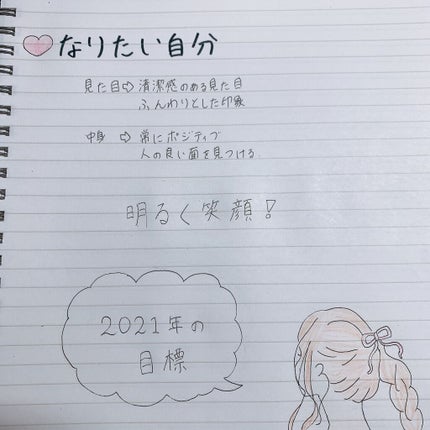 なりたい自分
見た目⇨清潔感のある見た目
ふんわりとした印象
中身 ⇨ 常にポジティブ
人の良い面を見つける
明るく笑顔!
2021年の
目標